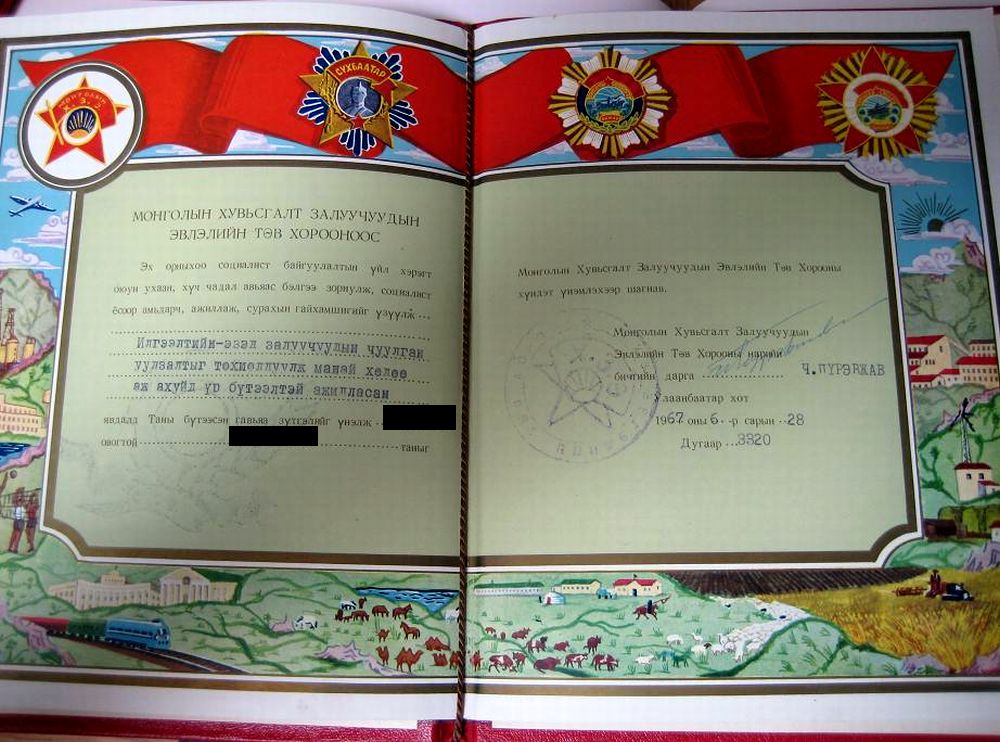 МОНГОЛЫН
Х.З.Э
СҮХБААТАР
МОНГОЛЫН ХУВЬСГАЛТ ЗАЛУУЧУУДЫН
ЭВЛЭЛИЙН ТӨВ ХОРООНООС
Эх орныхоо социалист байгуулалтын үйл хэрэгт
оюун ухаан, хүч чадал авьяас бэлгээ зориулж, социалист
ёсоор амьдарч, ажиллаж, сурахын гайхамшигийг үзүүлж
Илгээлтийн-эзэд залуучуудын чуулган
уулзалтыг төхиөлдүүлж манай хөдөө
аж ахуйд үр бүтээлтэй ажилласан
явдалд Таны бүтээсэн гавьяа зүтгэлийг үнэлж
овогтой таныг
Монголын Хувьсгалт Залуучуудын Эвлэлийн Төв Хорооны
хүндэт үнэмлэхээр шагнав.
Монголын Хувьсгалт Залуучуудын
Эвлэлийн Төв Хорооны нарийн
бичгийн дарга Ч.ПҮРЭВЖАВ
Улаанбаатар хот
1967 оны 6.-р сарын 28
Дугаар 3320